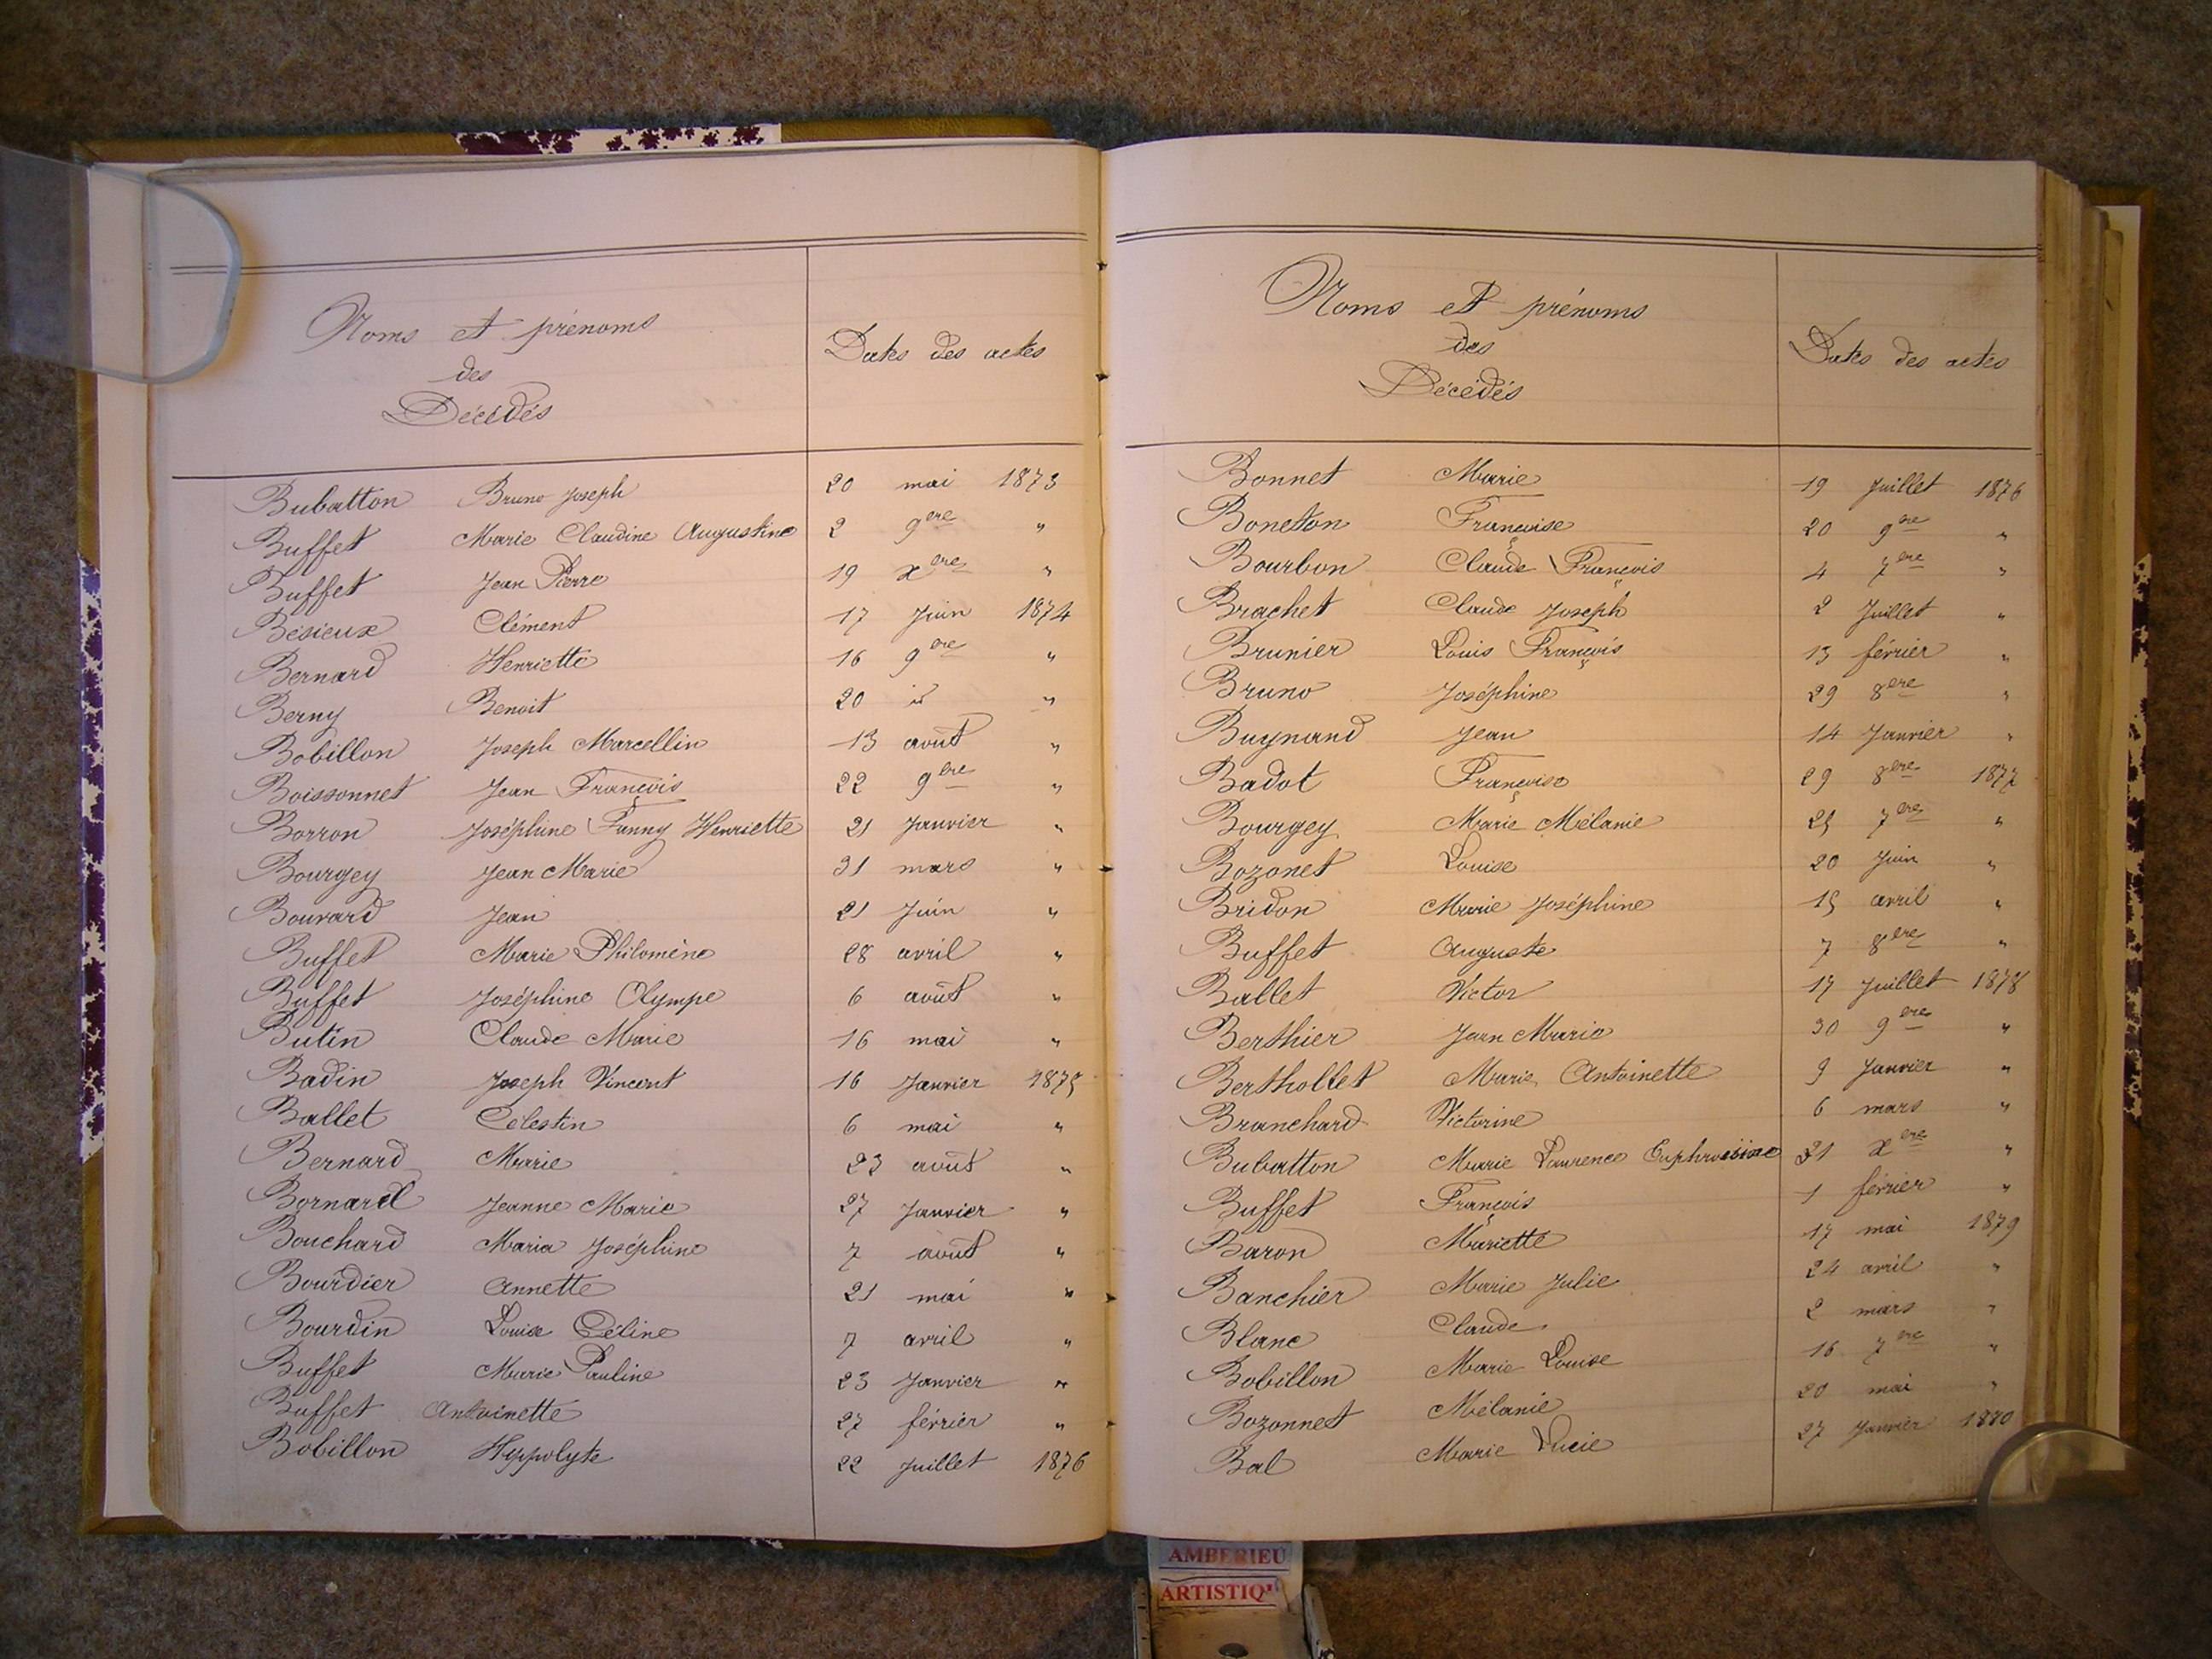 Noms et prénoms
des
Décédés
Dates des actes
Bubatton Bruno Joseph 20 mai 1873
Buffet Marie Claudine Augustine 2 9bre "
Buffet Jean Pierre 19 xbre "
Bésieux Clément 17 Juin 1874
Bernard Henriette 16 9bre "
Berny Benoit 20 id "
Bobillon Joseph Marcellin 13 août "
Boissonnet Jean François 22 9bre "
Borron Joséphine Fanny Henriette 21 Janvier "
Bourgey Jean Marie 31 mars "
Bouvard Jean 21 Juin "
Buffet Marie Philomène 28 avril "
Buffet Joséphine Olympe 6 août "
Butin Claude Marie 16 mai "
Badin Joseph Vincent 16 Janvier 1875
Ballet Célestin 6 mai "
Bernard Marie 23 août "
Bornarel Jeanne Marie 27 Janvier "
Bouchard Maria Joséphine 7 août "
Bourdier Annette 21 mai "
Bourdin Louise Céline 7 avril "
Buffet Marie Pauline 23 Janvier "
Buffet Antoinette 27 février "
Bobillon Hyppolyte 22 Juillet 1876
Noms et prénoms
des
Décédés
Dates des actes
Bonnet Marie 19 Juillet 1876
Boneton Françoise 20 9bre "
Bourbon Claude François 4 7bre "
Brachet Claude Joseph 2 Juillet "
Brunier Louis François 13 février "
Bruno Joséphine 29 8bre "
Buynand Jean 14 Janvier "
Badot Françoise 29 8bre 1877
Bourgey Marie Mélanie 25 7bre "
Bozonet Louise 20 Juin "
Bridon Marie Joséphine 15 avril "
Buffet Auguste 7 8bre "
Ballet Victor 17 Juillet 1878
Berthier Jean Marie 30 9bre "
Berthollet Marie Antoinette 9 Janvier "
Branchard Victorine 6 mars "
Bubatton Marie Laurence 21 xbre "
Buffet François 1 février "
Baron Mariette 17 mai 1879
Banchier Marie Julie 24 avril "
Blanc Claude 2 mars "
Bobillon Marie Louise 16 7bre "
Bozonnet Mélanie 20 mai "
Bal Marie Lucie 27 Janvier 1880
AMBERIEU
ARTISTIQ